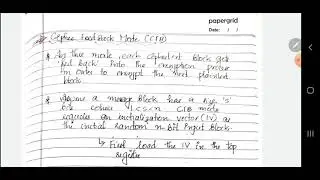 papergrid
Date: / /
Cipher Feed Back Mode (CFB)
In this mode, each ciphertext block gets
'fed back' into the encryption process
in order to encrypt the next plaintext
block.
a message block has a size 's'
where 1<s<n
requires an initialization vector (IV) as
the initial random n-bit input block.
↳ First load the IV in the top
register